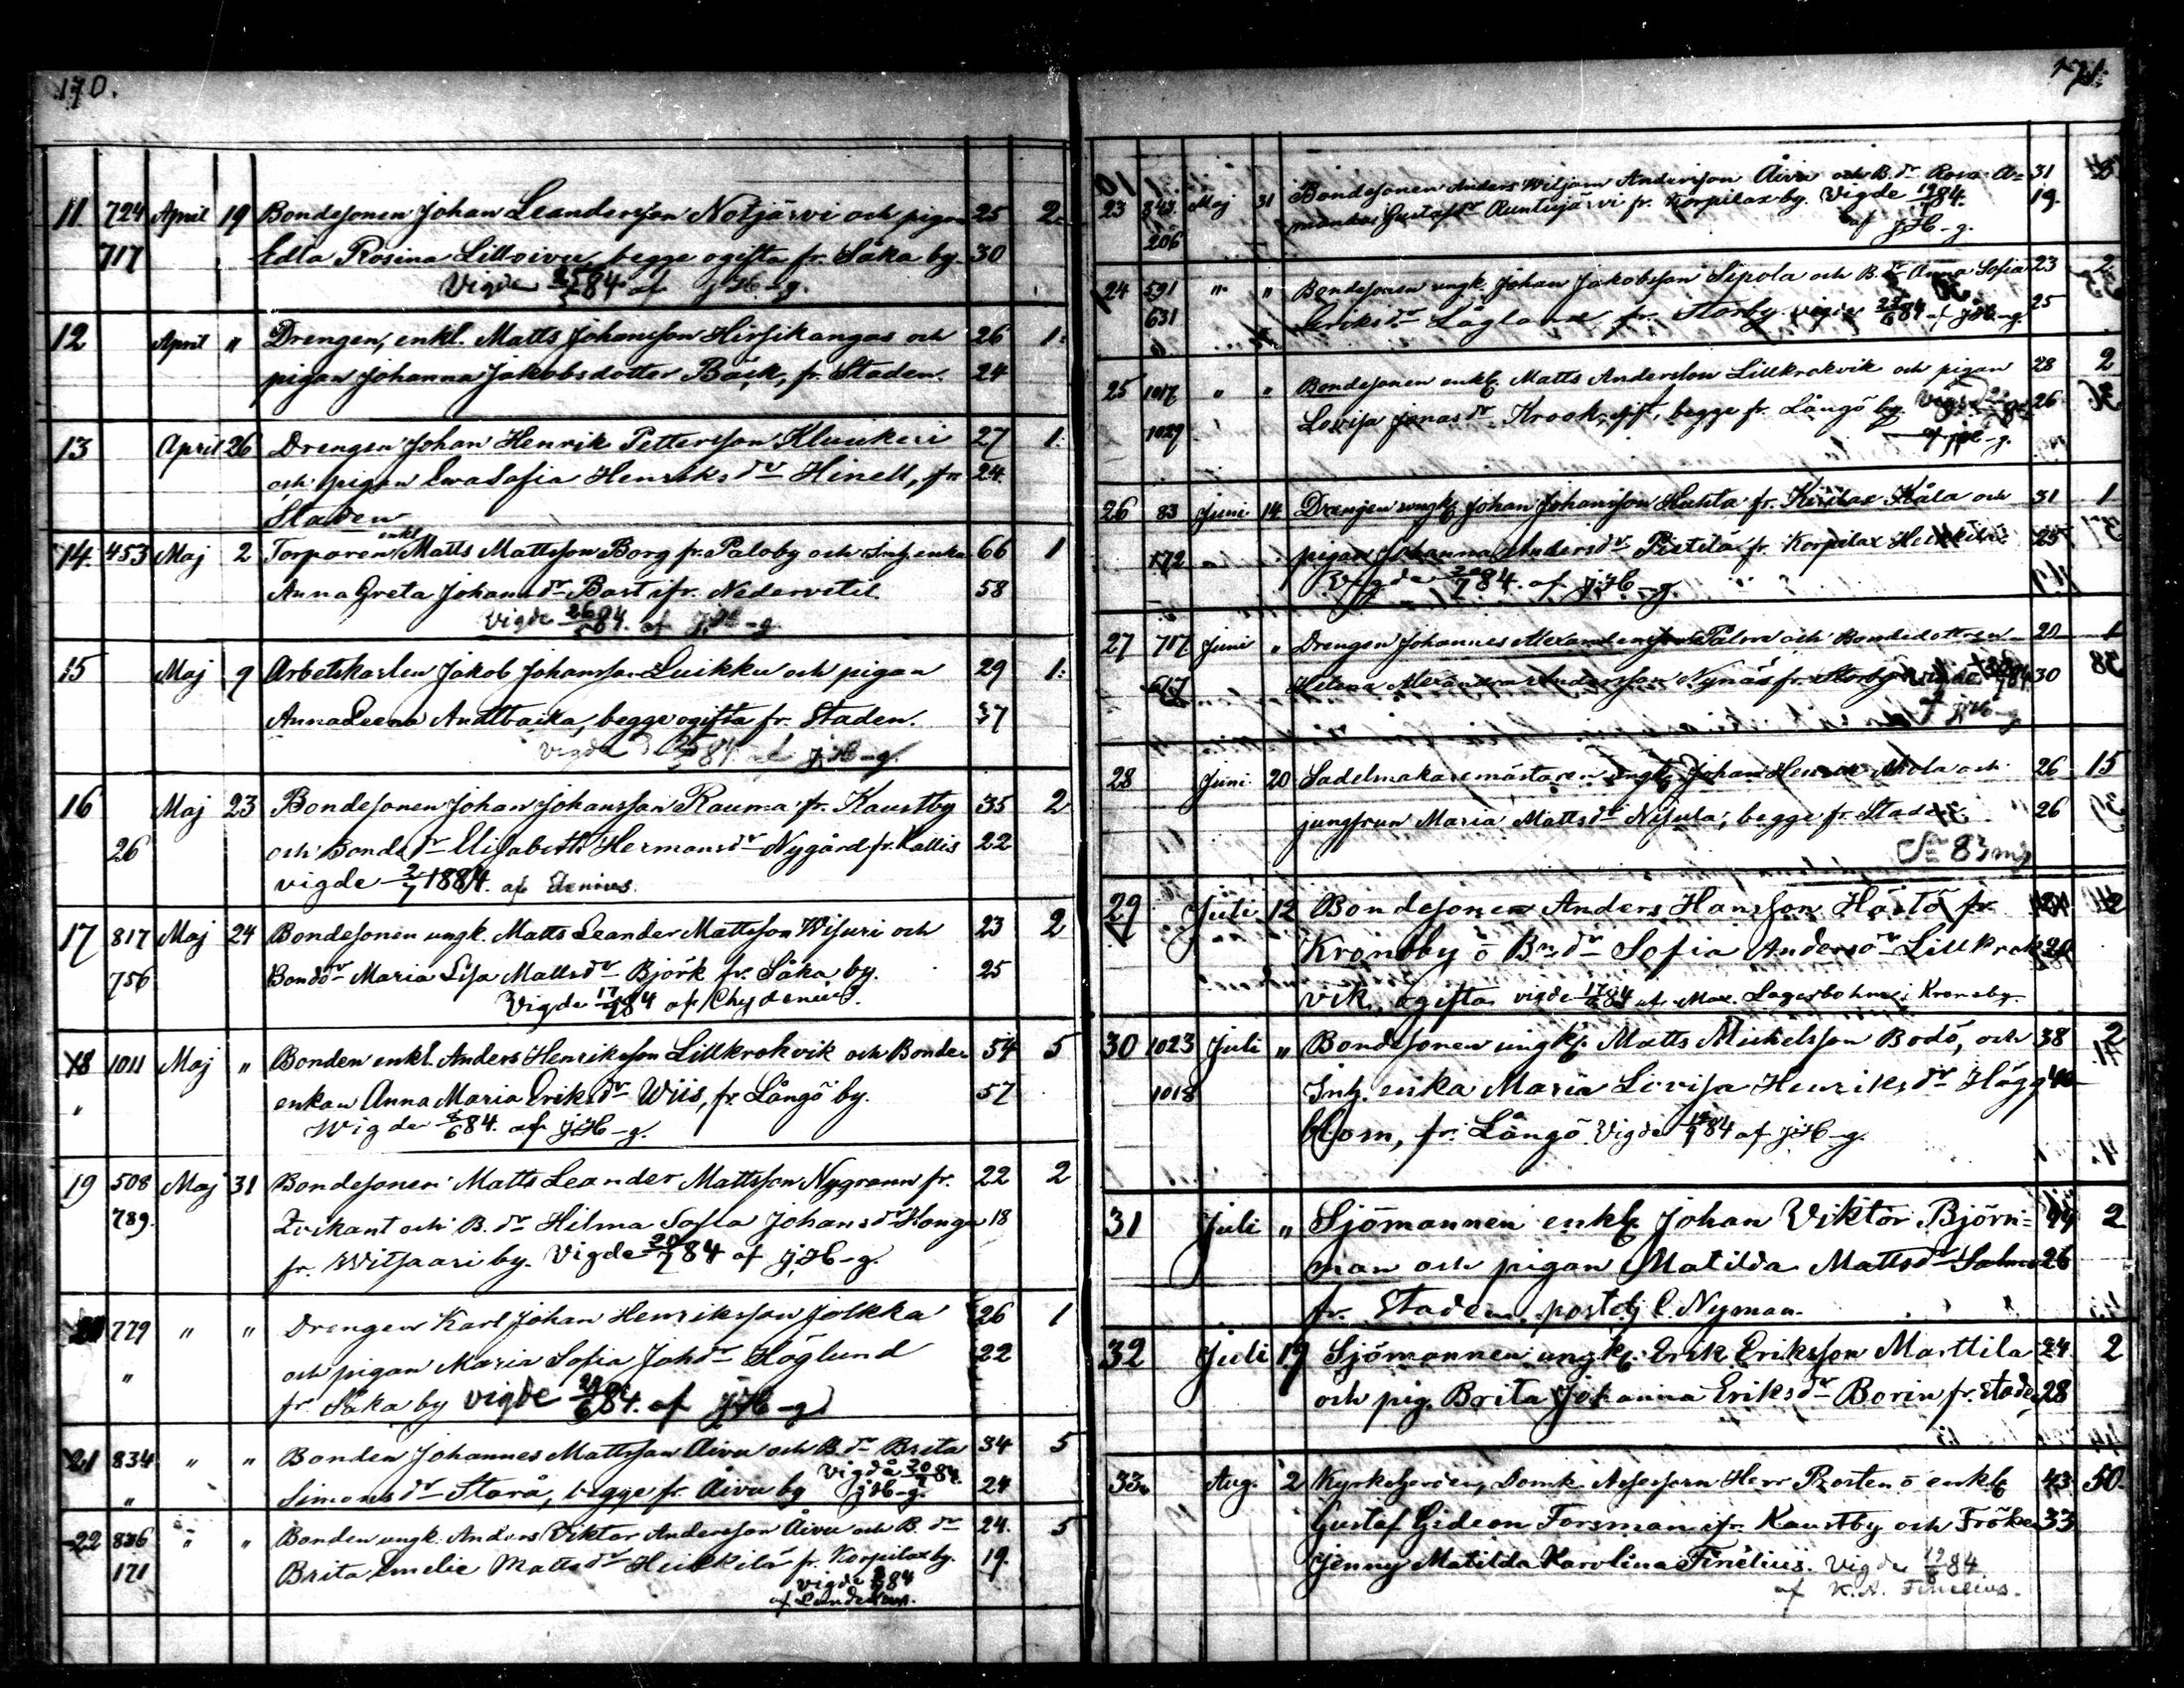 170.
11. 724 April 19 Bondesonen Johan Leandersson Notjärvi och pigan 25 2.
717 Edla Rosina Lilloivu, begge ogifta fr. Såka by 30
Vigde 84 af J.H-g.
12 April " Drengen, enkl. Matts Johansson Hirsikangas och 26 1:
pigan Johanna Jakobsdotter Bäck, fr. Staden. 24
13 April 26 Drengen Johan Henrik Pettersson Kluukeri 27 1:
och pigan Eva Sofia Henriksdr Hinell, fr 24.
Staden
14. 453 Maj 2 Torparen enkl Matts Mattsson Borg fr. Paloby och Inh. enka 66 1
Anna Greta Johansdr Bast ifr. Nedervetil 58
Vigde 84. af J.H-g.
15 Maj 9 Arbetskarlen Jakob Johansson Luikku och pigan 29 1:
Anna Leena Anttbacka, begge ogifta fr. Staden. 37
Vigde 84. af J.H-g.
16 Maj 23 Bondesonen Johan Johansson Rauma fr. Kaustby 35 2
26 och Bondedr Elisabeth Hermansdr Nygård fr. Kallis 22
vigde 2/7 1884. af
17 817 Maj 24 Bondesonen ungk. Matts Leander Mattsson Wisuri och 23 2
756 Bondedr Maria Lisa Mattsdr Björk fr. Såka by. 25
Vigde 84 af Chydenius.
18 1011 Maj " Bonden enkl. Anders Henriksson Lillkrokvik och Bonde 54 5
" enkan Anna Maria Eriksdr Wiis, fr. Långö by. 57
Wigde 84. af J.H-g.
19 508 Maj 31 Bondesonen Matts Leander Mattsson Nygrann fr. 22 2
789. och B.dr Hilma Sofia Johansdr Konga 18
fr. Witsaari by. Vigde 84 af J.H-g.
20 779 " " Drengen Karl Johan Henriksson Jolkka 26 1
" och pigan Maria Sofia Johdr Höglund 22
fr. Såka by vigde 84. af J.H-g
21 834 " " Bonden Johannes Mattsson Åivu och B.dr Brita 34 5
" Simonsdr Starå, begge fr. Åivu by Vigde 84. J.H-g. 24
22 836 " " Bonden ungk. Anders Viktor Andersson Åivu och B.dr 24. 5
171 Brita Emelie Mattsdr Heikkilä fr. Korpilax by. 19.
vigde 84
af
171.
23 843. Maj 31 Bondesonen Anders Wiljam Andersson Åivu och B.dr Rosa A= 31
206 manda Gustafsdr Runtujärvi fr. Korpilax by. Vigde 84. 19.
af J.H-g.
24 591 " " Bondesonen ungk. Johan Jakobsson Sipola och B.dr Anna Sofia 23 2
631 Eriksdr Låglund fr. Storby. vigde 84 af J.H-g. 25
25 1017 " " Bondesonen enkl. Matts Andersson Lillkrokvik och pigan 28 2
1029 Lovisa Jonasdr Krook, ogift, begge fr. Långö by. 26
af J.H-g.
26 83 Juni 14 Drengen ungk Johan Johansson Huhta fr. Kirilax Kåla och 31 1
172 pigan Johanna Andersdr Pietilä fr. Korpilax Heikkilä 25
Vigde 84. af J.H-g.
27 717. Juni " Drengen Johannes Alexandersson Palm och Bondedottren 20 1
617 Helena Alexandra Andersson Nynäs fr. Storby Vigde 84 30
af J.H-g
28 Juni 20 Sadelmakaremästaren ungk Johan Henrik Niola och 26 15
jungfrun Maria Mattsdr Nisula, begge fr. Staden 26
29 Juli 12 Bondesonen Anders Hansson Hästö fr. 2
Kronoby o Bndr Sofia Andersdr Lillkrok=
vik, ogifta. vigde 84 af Max. Lagerbohm i Kronoby.
30 1023 Juli " Bondesonen ungk. Matts Mickelsson Bodö, och 38 2
1018 Inh. enka Maria Lovisa Henriksdr Högg=
blom, fr. Långö. Vigde 84 af J.H-g.
31 Juli " Sjömannen enkl. Johan Viktor Björn= 2
man och pigan Matilda Mattsdr 26
fr. Staden. C. Nyman.
32 Juli 19 Sjömannen ungk. Erik Eriksson Marttila 24. 2
och pig. Brita Johanna Eriksdr Borin fr. Staden 28
33. Aug. 2 Kyrkoherden, Domk. Assessorn Herr Prosten o enkl. 43. 50.
Gustaf Gideon Forsman ifr. Kaustby och Fröken 33
Jenny Matilda Karolina Finélius. Vigde 19/8 84
af K.A. Finelius.